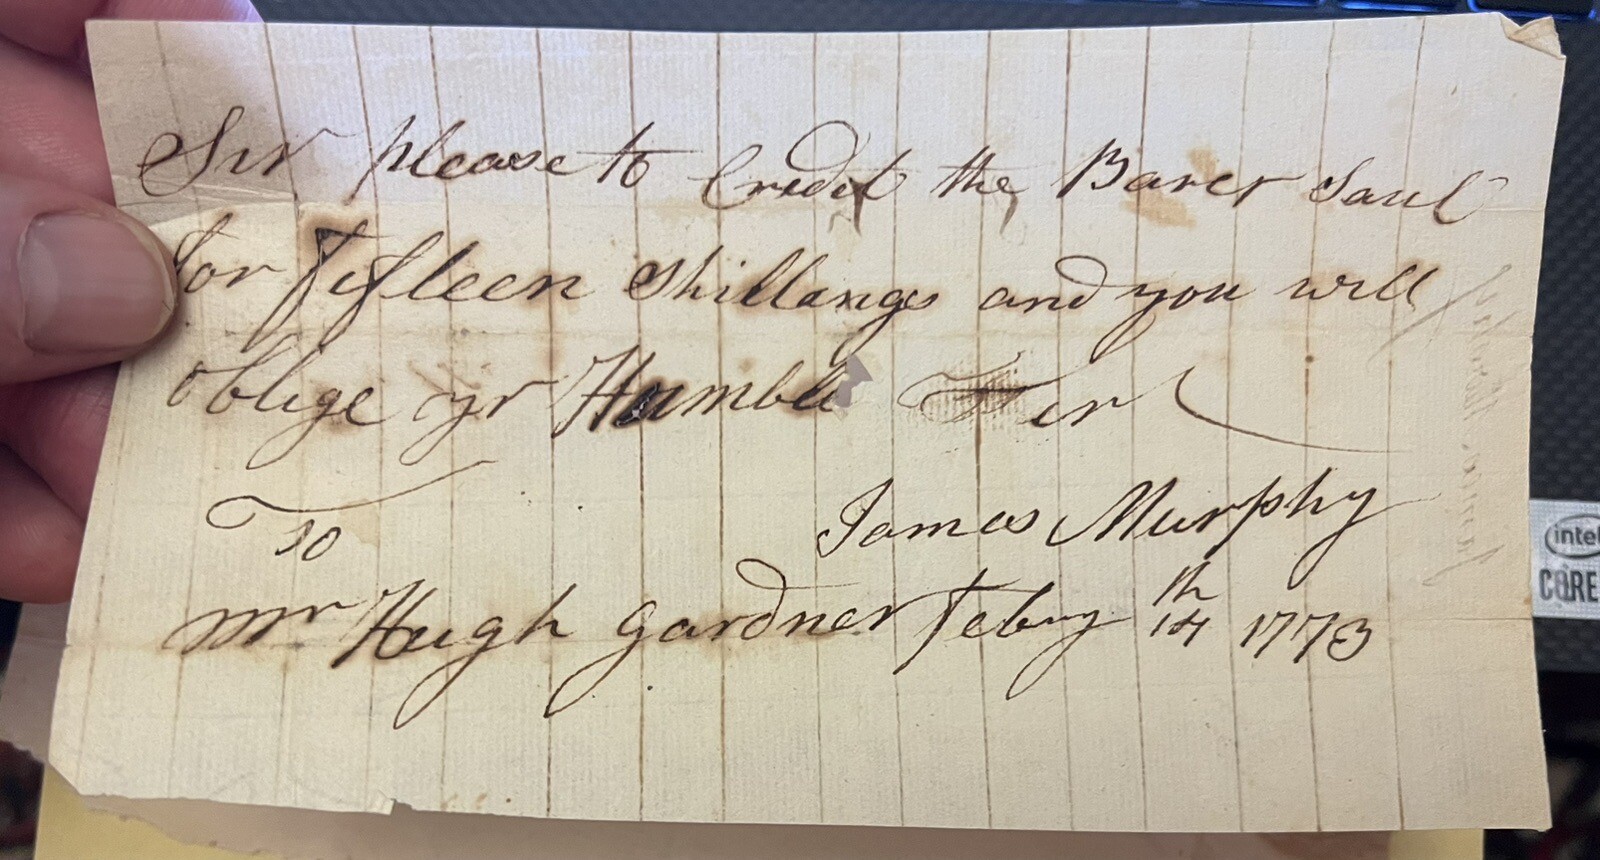 Sir please to Credit the Barer Saul
for fifteen Shillangs and you will
oblige yr Humble Ser
James Murphy
To
mr Hugh Gardner Febuy 14th 1773
intel
CORE